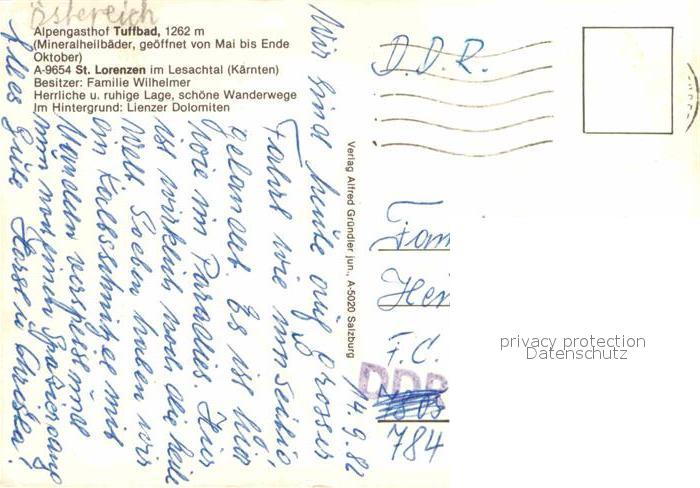 Österreich
Alpengasthof Tuffbad, 1262 m
(Mineralheilbäder, geöffnet von Mai bis Ende
Oktober)
A-9654 St. Lorenzen im Lesachtal (Kärnten)
Besitzer: Familie Wilhelmer
Herrliche u. ruhige Lage, schöne Wanderwege
Im Hintergrund: Lienzer Dolomiten
14.9.82
Wir sind heute auf grosser
Fahrt wie
gelandet. Es ist hier
wie im Paradies. Hier
ist wirklich noch die heile
Welt. Soeben haben wir
ein Kalbsschnitzel mit
verspeist und
nun noch einen Spaziergang
Alles Gute Horst u. Christa!
Verlag Alfred Gründler jun., A-5020 Salzburg
D.D.R.
Fam
Her
F.C.
DDR
784
privacy protection
Datenschutz